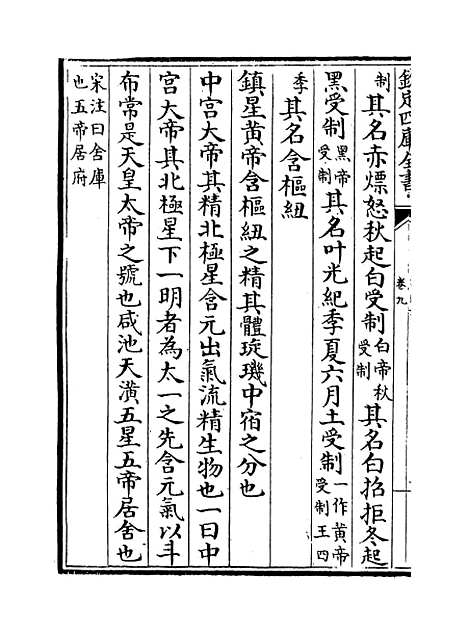 欽定四庫全書
卷九
制其名赤熛怒秋起白受制白帝秋受制其名白招拒冬起
黑受制黑帝受制其名叶光紀季夏六月土受制一作黄帝受制王四
季其名含樞紐
鎮星黄帝含樞紐之精其體琁璣中宿之分也
中宫大帝其精北極星含元出氣流精生物也一曰中
宫大帝其北極星下一明者為太一之先含元氣以斗
布常是天皇太帝之號也咸池天潢五星五帝居舍也
宋注曰舍庫
也五帝居府